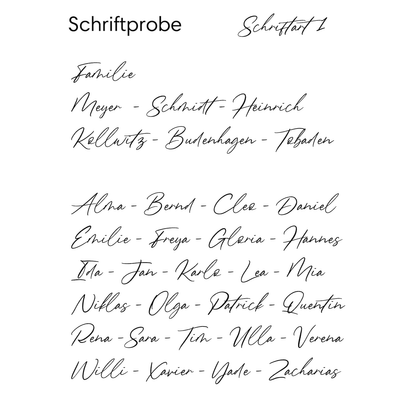 Schriftprobe Schriftart 1
Familie
Meyer - Schmidt - Heinrich
Kollwitz - Budenhagen - Tobaden
Alma - Bernd - Cleo - Daniel
Emilie - Freya - Gloria - Hannes
Ida - Jan - Karlo - Lea - Mia
Niklas - Olga - Patrick - Quentin
Rena - Sara - Tim - Ulla - Verena
Willi - Xavier - Yade - Zacharias